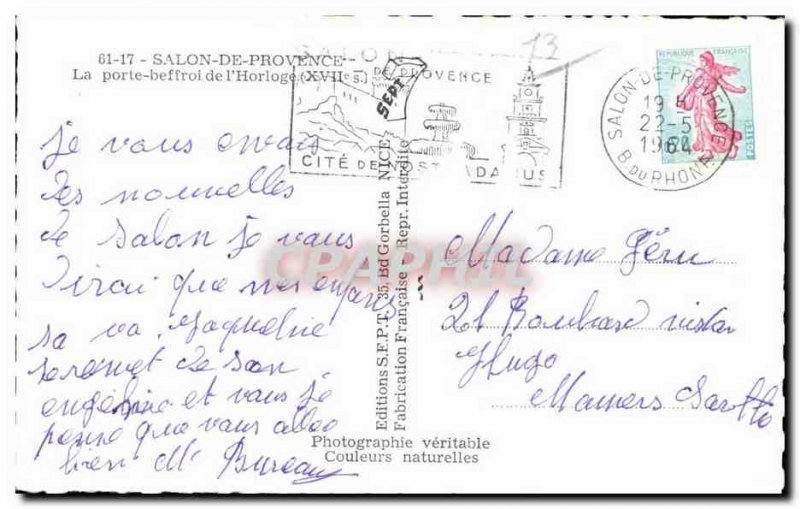 61-17 - SALON-DE-PROVENCE
La porte-beffroi de l'Horloge (XVIIe s.)
SALON
DE PROVENCE
CITÉ DE NOSTRADAMUS
13
REPUBLIQUE FRANÇAISE
POSTES
SALON-DE-PROVENCE
19 H
22-5
1964
B DU RHONE
je vous envais
des nouvelles
de Salon je vous
dirai que mes enfants
sa va. Jaqueline
se remet de son
et vous je
pense que vous allee
bien Mr Bureau
Editions S.E.P.T. 35, Bd Gorbella NICE
Fabrication Française - Repr. Interdite
SEPT
CPAPHIL
Madame Féru
21 Boulvard victor
Hugo
Mamers Sarthe
Photographie véritable
Couleurs naturelles